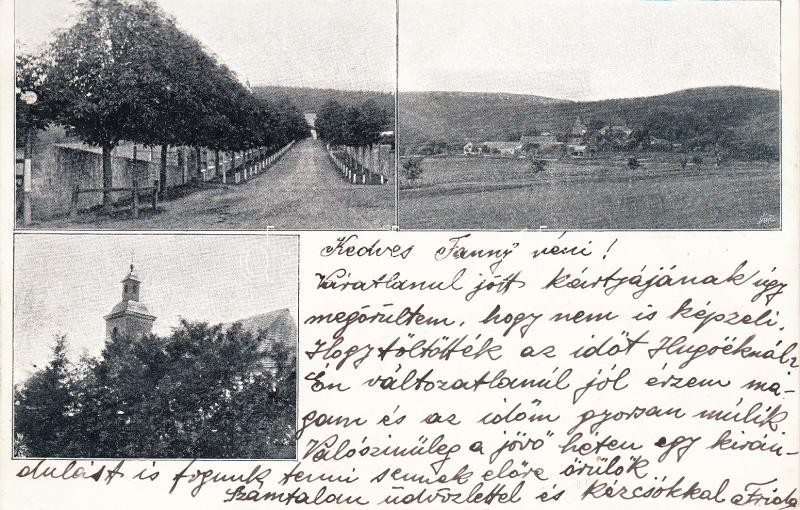 Kedves Fanny néni!
Váratlanul jött kártyájának úgy
megörültem, hogy nem is képzeli.
Hogy töltötték az időt Hugóéknál?
Én változatlanúl jól érzem ma-
gam és az időm gyorsan múlik
Valószinüleg a jövő héten egy kirán-
dulást is fogunk tenni ennek előre örülök
Számtalan üdvözlettel és kézcsókkal Frida